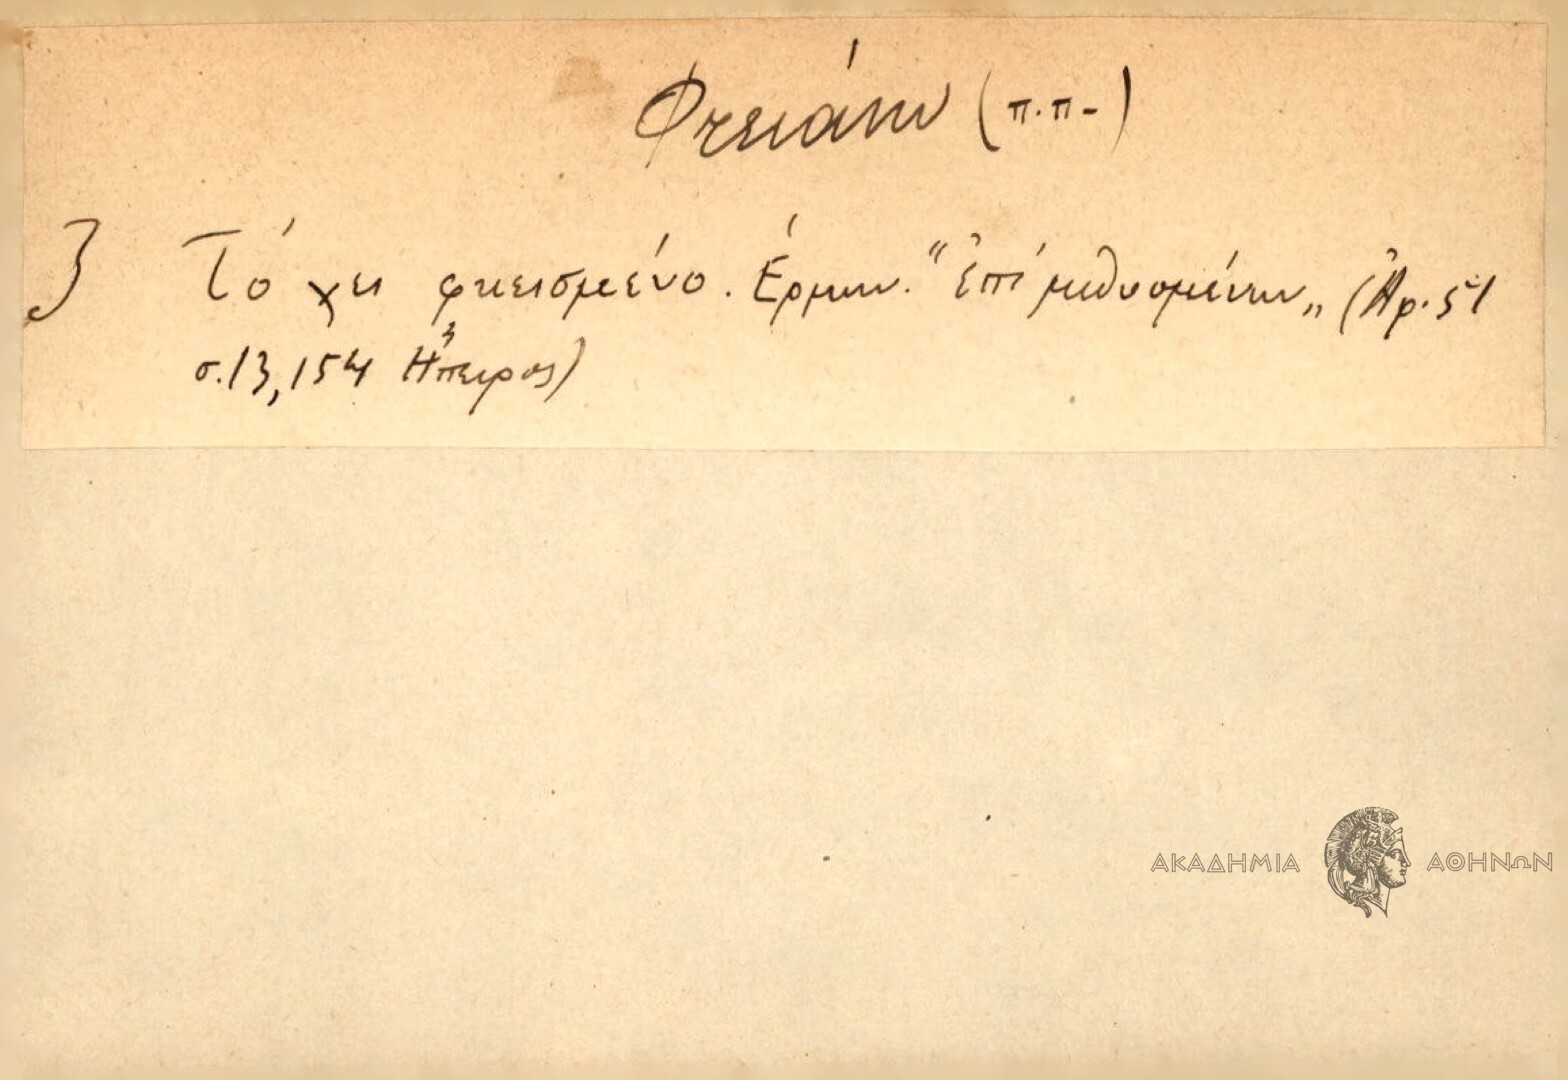 Φτειάνω (π.π.)
3 Τό χει φτειασμένο. Έρμην. "ἐπί μεθυσμένων" (Ἀρ. 51
σ. 13, 154 Ἤπειρος)
ΑΚΑΔΗΜΙΑ ΑΘΗΝΩΝ